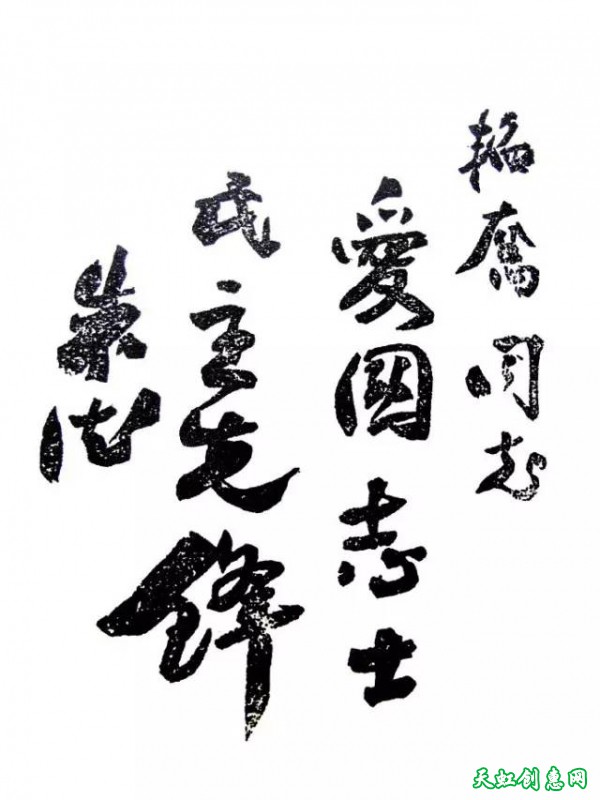 韜奮同志
愛國志士
民主先鋒
朱德
天虹创惠网